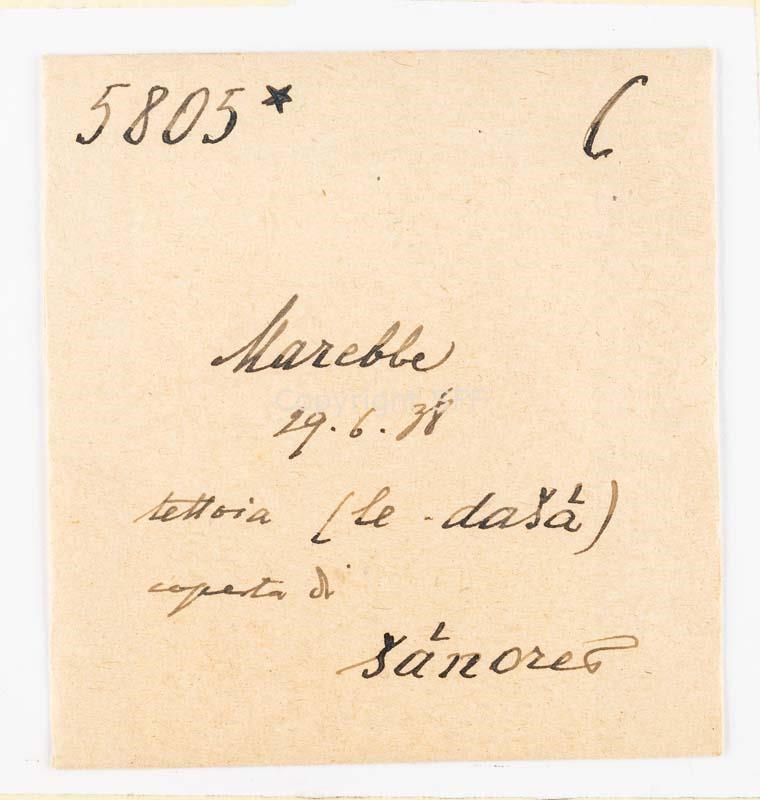 5805* C
Marebbe
29.6.38
tettoia (le dašá)
coperta di
šánores